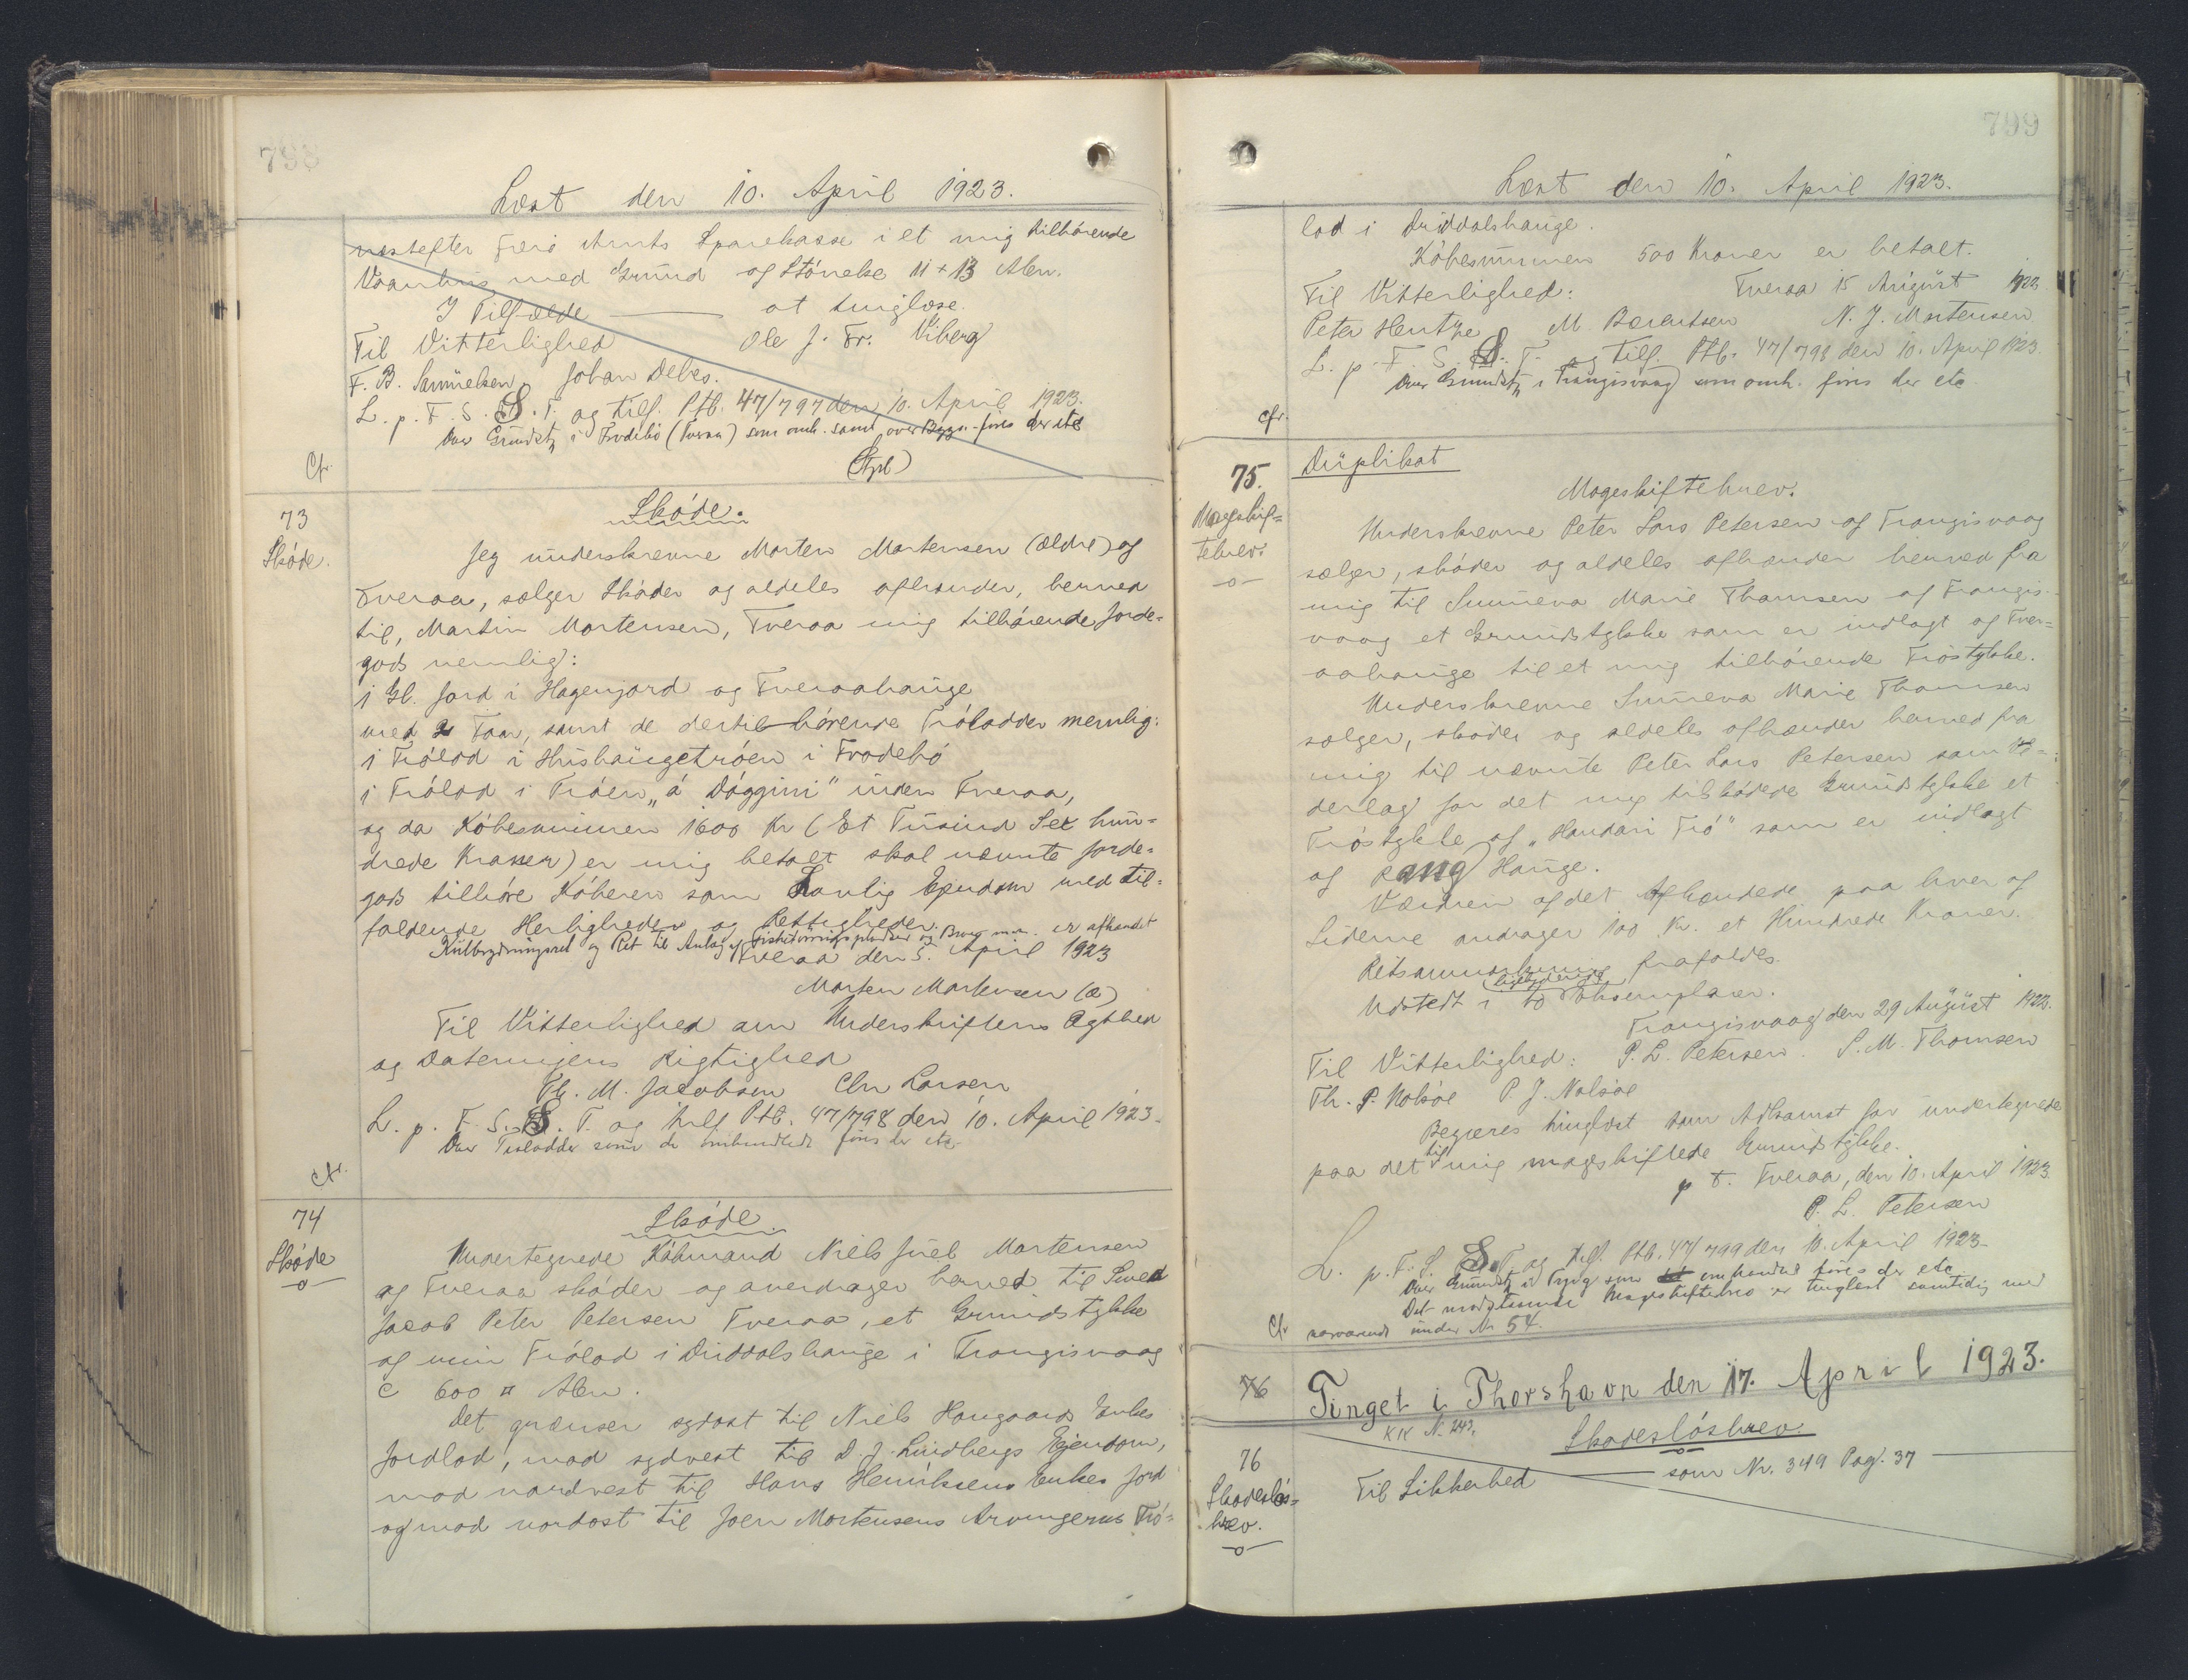 798
Læst den 10. April 1923.
næstefter Færø Amts Sparekasse i et mig tilhørende
Vaanhus med Grund og Størrelse 11 + 13 Alen.
I Tilfælde — at tinglæse.
Til Vitterlighed Ole J. Fr. Viberg
F. B. Samuelsen Johan Debes.
L. p. F. S. S. T. og Tilf. Ptb. 47/797 den 10. April 1923.
Over Grundst. i Frodebø (Tveraa) som omh. samt over Bygn. fires der etc
Cfr.
73
Skøde.
Skøde.
Jeg underskrevne Morten Mortensen (ældre) af
Tveraa, sælger Skøder og aldeles afhænder, herved
til, Martin Mortensen, Tveraa mig tilhørende Jorde=
gods nemlig:
1 Gl. Jord i Hagenjord og Tveraahauge
med 2 Faar, samt de dertil hørende Trøladder nemlig:
1 Trølad i Húshaugetrøen i Frodebø
1 Trølad i Trøen „á Døggini" inden Tveraa,
og da Købesummen 1600 Kr (Et Tusind Sex hun=
drede Kroner) er mig betalt skal nævnte Jorde=
gods tilhøre Køberen som Lovlig Ejendom med til=
faldende Herligheder og Rettigheder.
Kulbrydningsret og Ret til Anlæg af Fisketørringspladser og Brug m.m. er afhændet
Tveraa den 5. April 1923
Morten Mortensen (æ)
Til Vitterlighed om Underskriftens Ægthed
og Dateringens Rigtighed
Th. M. Jacobsen Chr Larsen
L. p. F. S. S. T. og Tilf Ptb. 47/798 den 10. April 1923.
Over Trøladder som de omhandlede fires der etc
cfr.
74
Skøde
Skøde.
Undertegnede Købmand Niels Juel Mortensen
af Tveraa skøder og overdrager herved til Smed
Jacob Peter Petersen Tveraa, et Grundstykke
af min Trølod i Driddalshauge i Trongisvaag
c 600 ¤ Alen.
Det grænser sydost til Niels Hougaards Enkes
Jordlod, mod sydvest til D. J. Lindbergs Ejendom,
mod nordvest til Hans Henriksens Enkes Jord
og mod nordost til Joen Mortensens Arvingerns Trö=
799
Læst den 10. April 1923.
lod i Driddalshauge.
Købesummen 500 Kroner er betalt.
Til Vitterlighed: Tveraa 15 August 1922
Peter Hentze M. Barentsen N. J. Mortensen
L. p. F. S. S. T. og Tilf. Ptb. 47/798 den 10. April 1923.
Over Grundst. i Trangisvaag som omh. fires der etc
cfr.
75.
Mageskif=
tebrev.
Duplikat
Mageskiftebrev.
Underskrevne Peter Lars Petersen af Trangisvaag
sælger, skøder og aldeles afhænder herved fra
mig til Sunneva Marie Thomsen af Trangis=
vaag et Grundstykke som er indlagt af Tver=
aahauge til et mig tilhørende Trøstykke.
Underskrevne Sunneva Marie Thomsen
sælger, skøder og aldeles afhænder herved fra
mig til nævnte Peter Lars Petersen som Ve=
derlag for det mig tilskødede Grundstykke et
Trøstykke af „Handari Trø" som er indlagt
af Rang Hauge.
Værdien af det Afhændede paa hver af
Siderne andrager 100 Kr. et Hundrede Kroner.
Retsanmærkning frafaldes.
Udstedt i to ligelydende Eksemplarer.
Trangisvaag den 29 August 1922.
Til Vitterlighed: P. L. Petersen. S. M. Thomsen
Th. P. Nolsøe P. J. Nolsøe
Begæres tinglæst som Adkomst for undertegnede
paa det til mig mageskiftede Grundstykke.
p t. Tveraa, den 10. April 1923.
P. L. Petersen
L. p. F. S. S. T. og Tilf. Ptb. 47/799 den 10. April 1923.
Over Grundst. i Tvg som omhandlet fires der etc
Det modstaaende Mageskiftebrev er tinglæst samtidig med
nærværende under Nr 54.
Cfr
76 Tinget i Thorshavn den 17. April 1923.
KK N. 243.
76
Skadesløs=
brev.
Skadesløsbrev.
Til Sikkerhed — som Nr. 349 Pag. 37 —